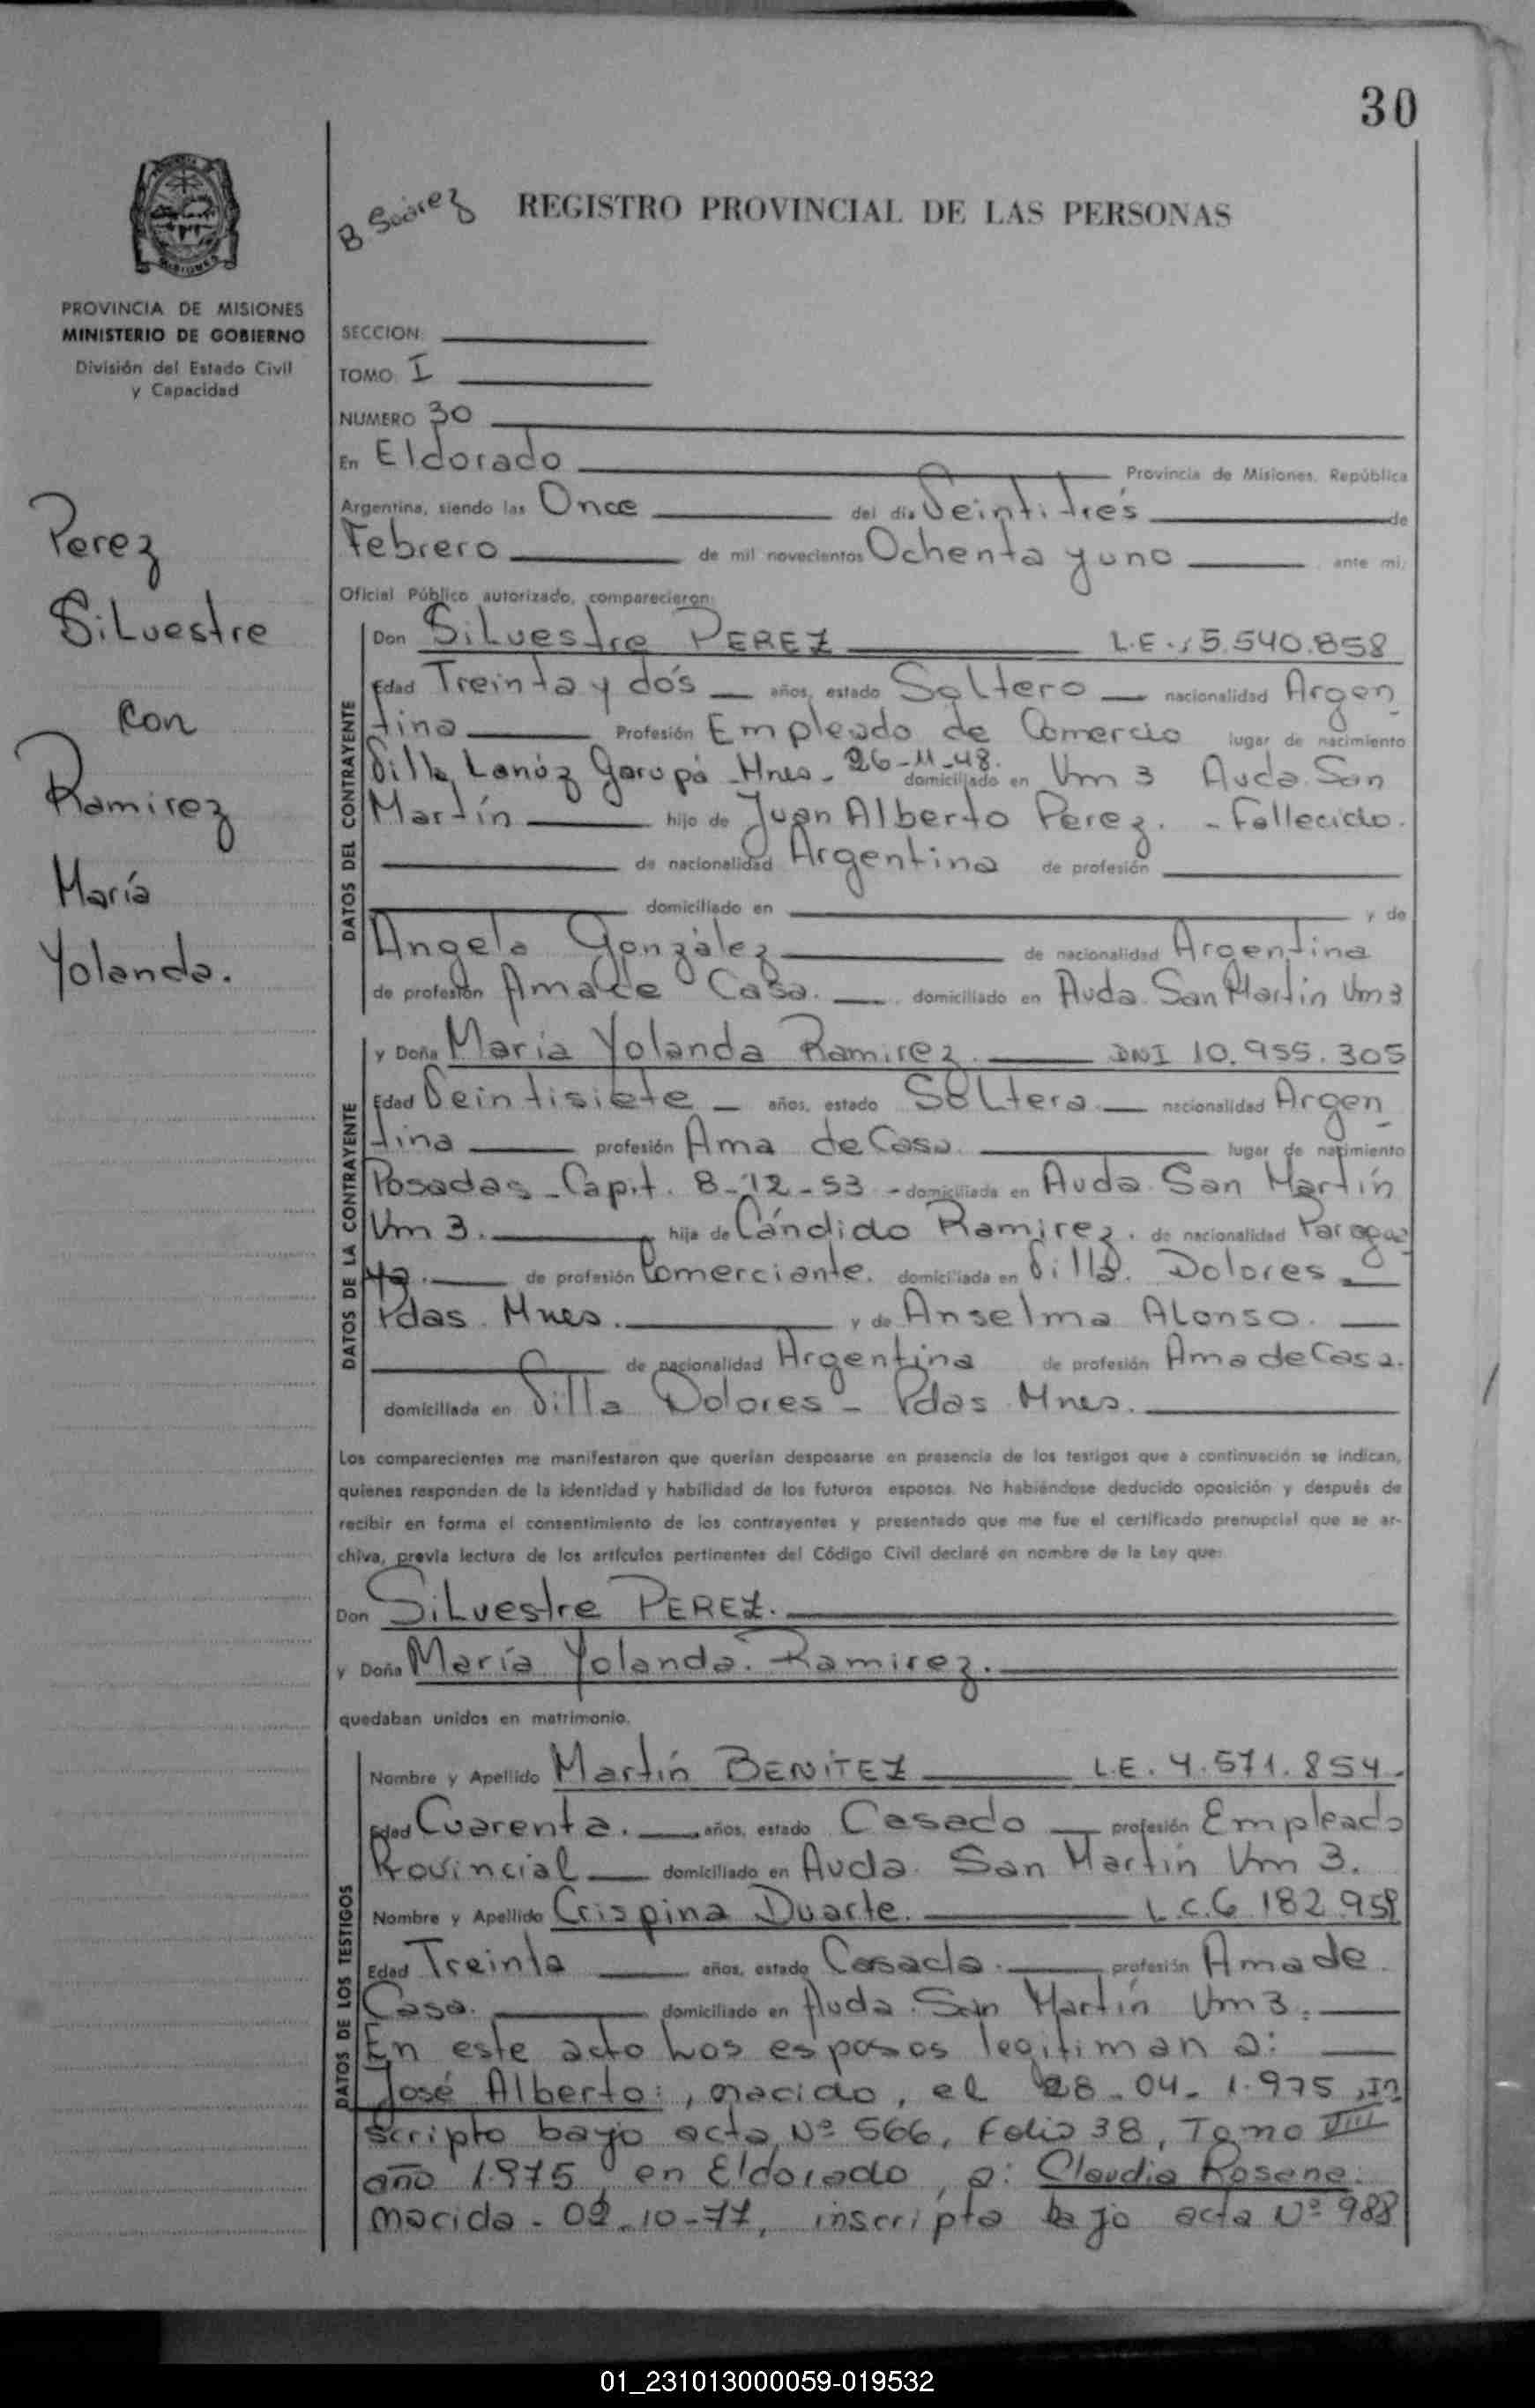 30
B Suárez
REGISTRO PROVINCIAL DE LAS PERSONAS
MISIONES
PROVINCIA DE MISIONES
MINISTERIO DE GOBIERNO
División del Estado Civil
y Capacidad
Perez
Silvestre
con
Ramirez
María
Yolanda.
SECCION:
TOMO: I
NUMERO 30
En Eldorado Provincia de Misiones, República
Argentina, siendo las Once del día Veintitrés de
Febrero de mil novecientos Ochenta y uno ante mi,
Oficial Público autorizado, comparecieron:
DATOS DEL CONTRAYENTE
Don Silvestre PEREZ L.E. 5.540.858
Edad Treinta y dós años, estado Soltero nacionalidad Argen
tina Profesión Empleado de Comercio lugar de nacimiento
Villa Lanúz Garupá - Mnes - 26-11-48. domiciliado en Km 3 Avda. San
Martín hijo de Juan Alberto Perez. - Fallecido.
de nacionalidad Argentina de profesión
domiciliado en y de
Angela González de nacionalidad Argentina
de profesión Ama de Casa. domiciliado en Avda. San Martín Km 3
DATOS DE LA CONTRAYENTE
y Doña María Yolanda Ramirez. DNI 10.955.305
Edad Veintisiete años, estado Soltera nacionalidad Argen
tina profesión Ama de Casa. lugar de nacimiento
Posadas - Capit. 8-12-53 - domiciliada en Avda. San Martín
Km 3. hija de Cándido Ramirez. de nacionalidad Paragua
ya. de profesión Comerciante. domiciliada en Villa. Dolores
Pdas. Mnes. y de Anselma Alonso.
de nacionalidad Argentina de profesión Ama de Casa.
domiciliada en Villa Dolores - Pdas Mnes.
Los comparecientes me manifestaron que querían desposarse en presencia de los testigos que a continuación se indican,
quienes responden de la identidad y habilidad de los futuros esposos. No habiéndose deducido oposición y después de
recibir en forma el consentimiento de los contrayentes y presentado que me fue el certificado prenupcial que se ar-
chiva, previa lectura de los artículos pertinentes del Código Civil declaré en nombre de la Ley que:
Don Silvestre PEREZ.
y Doña María Yolanda. Ramirez.
quedaban unidos en matrimonio.
DATOS DE LOS TESTIGOS
Nombre y Apellido Martín BENITEZ L.E. 4.571.854.
Edad Cuarenta. años, estado Casado profesión Empleado
Provincial domiciliado en Avda. San Martín Km 3.
Nombre y Apellido Crispina Duarte. L.C. 6 182.958
Edad Treinta años, estado Casada. profesión Ama de
Casa. domiciliado en Avda. San Martín Km 3.
En este acto los esposos legitiman a:
José Alberto:, nacido, el 28-04-1.975, In
scripto bajo acta Nº 566, Folio 38, Tomo VIII
año 1.975 en Eldorado, a: Claudia Rosana.
nacida - 02-10-77, inscripta bajo acta Nº 988
01_231013000059-019532